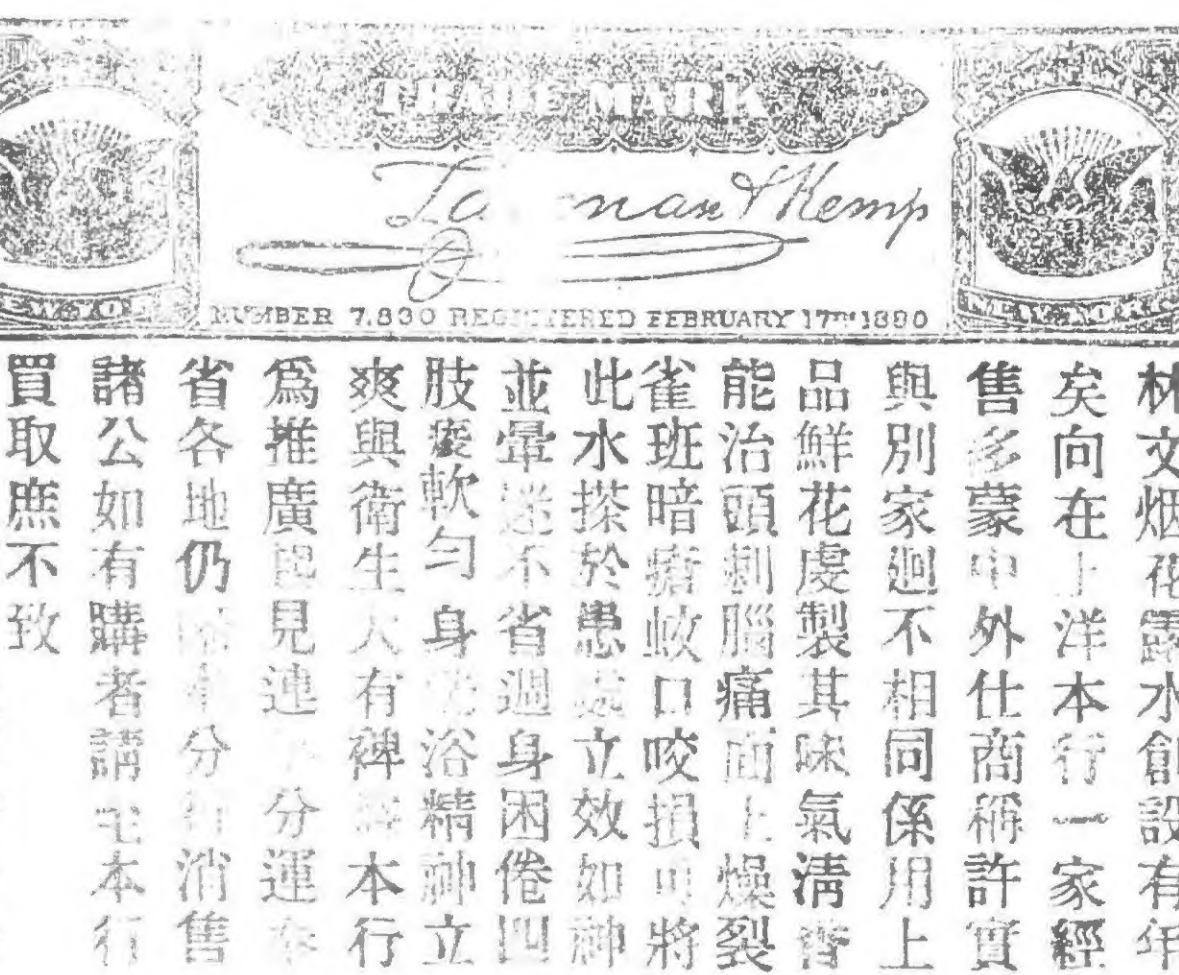 TRADE MARK
& Kemp
NUMBER 7.830 REGISTERED FEBRUARY 17TH 1880
林文烟花露水創設有年
矣向在上洋本行一家經
售多蒙中外仕商稱許實
與別家迥不相同係用上
品鮮花虔製其味氣清香
能治頭刺腦痛面上燥裂
雀班暗瘡蚊口咬損可將
此水搽於患處立效如神
並暈迷不省週身困倦四
肢痠軟勻身 浴精神立
爽與衛生大有裨 本行
爲推廣 見連 分運
省各地仍 分 消售
諸公如有購者請 本行
買取庶不致